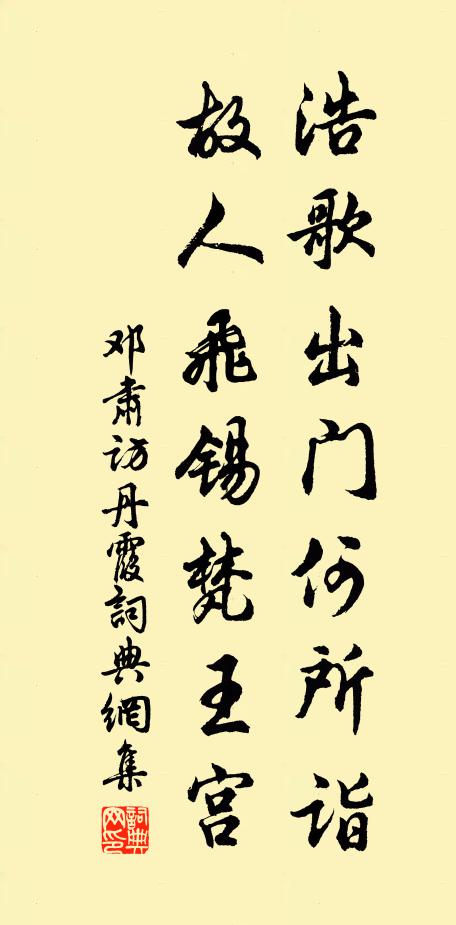 浩歌出门何所诣
故人飛锡梵王宫
邓肅访丹霞詞典網集
詞典網印